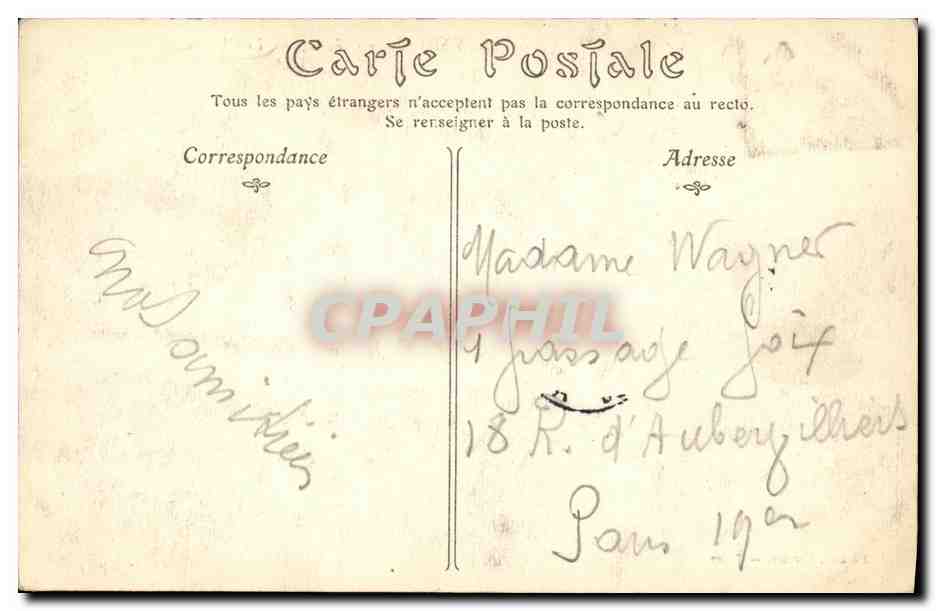 Carte Postale
Tous les pays étrangers n'acceptent pas la correspondance au recto.
Se renseigner à la poste.
Correspondance
Nos amitiés
Adresse
Madame Wagner
1 passage Goix
18 R. d'Aubervilliers
Paris 19er
CPAPHIL